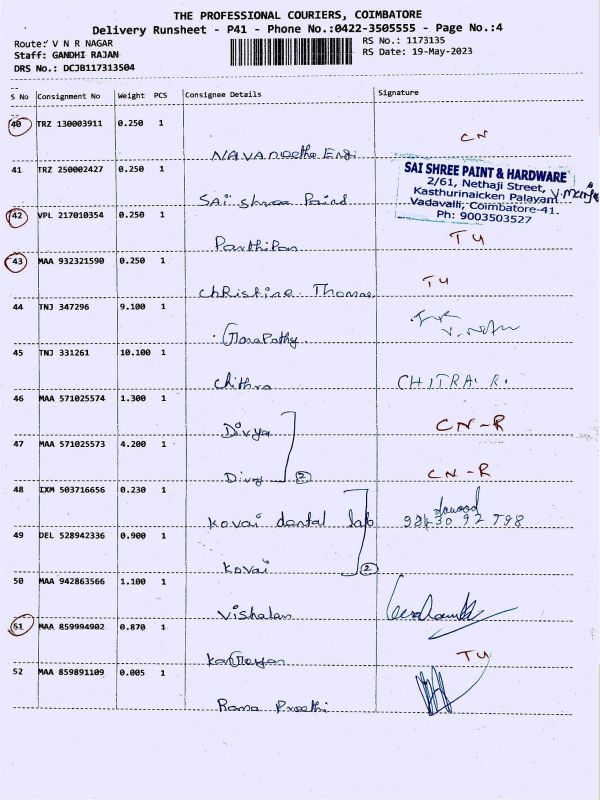 THE PROFESSIONAL COURIERS, COIMBATORE
Delivery Runsheet - P41 - Phone No.:0422-3505555 - Page No.:4
Route: V N R NAGAR
RS No.: 1173135
Staff: GANDHI RAJAN
RS Date: 19-May-2023
DRS No.: DCJB117313504
S No Consignment No Weight PCS Consignee Details Signature
40 TRZ 130003911 0.250 1
CN
Navaneetha Engi
41 TRZ 250002427 0.250 1
SAI SHREE PAINT & HARDWARE
2/61, Nethaji Street,
Kasthurinaicken Palayam
Vadavalli, Coimbatore-41.
Ph: 9003503527
Sai Shree Paind
42 VPL 217010354 0.250 1
TU
Parthipan
43 MAA 932321590 0.250 1
TU
Christine Thomas
44 TNJ 347296 9.100 1
45 TNJ 331261 10.100 1
CHITRA. R.
Chithra
46 MAA 571025574 1.300 1
CN-R
Divya
47 MAA 571025573 4.200 1
CN-R
Divy
2
48 IXM 503716656 0.230 1
dawood
92430 92798
Kovai dental lab
49 DEL 528942336 0.900 1
Kovai
2
50 MAA 942863566 1.100 1
Vishalan
51 MAA 859994902 0.870 1
TU
52 MAA 859891109 0.005 1
Rama Preethi